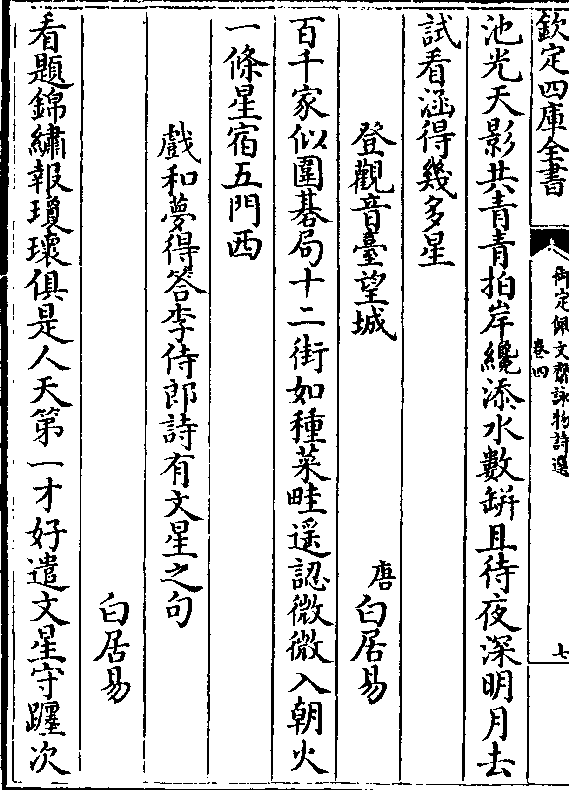 欽定四庫全書
御定佩文齋詠物詩選
卷四
七
池光天影共青青拍岸纔添水數缾且待夜深明月去
試看涵得幾多星
登觀音臺望城
唐白居易
百千家似圍碁局十二街如種菜畦遥認微微入朝火
一條星宿五門西
戲和夢得答李侍郎詩有文星之句
白居易
看題錦繡報瓊瓌俱是人天第一才好遣文星守躔次